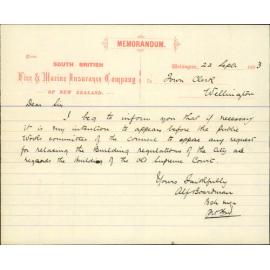 MEMORANDUM.
From
SOUTH BRITISH
Fire & Marine Insurance Company
OF NEW ZEALAND.
Wellington, 23 Sept 3
To Town Clerk
Wellington
Dear Sir
I beg to inform you that if necessary
it is my intention to appear before the Public
Works Committee of the Council to oppose any request
for relaxing the Building regulations of the City as
regards the Building of the old Supreme Court.
Yours faithfully
Alf Boardman